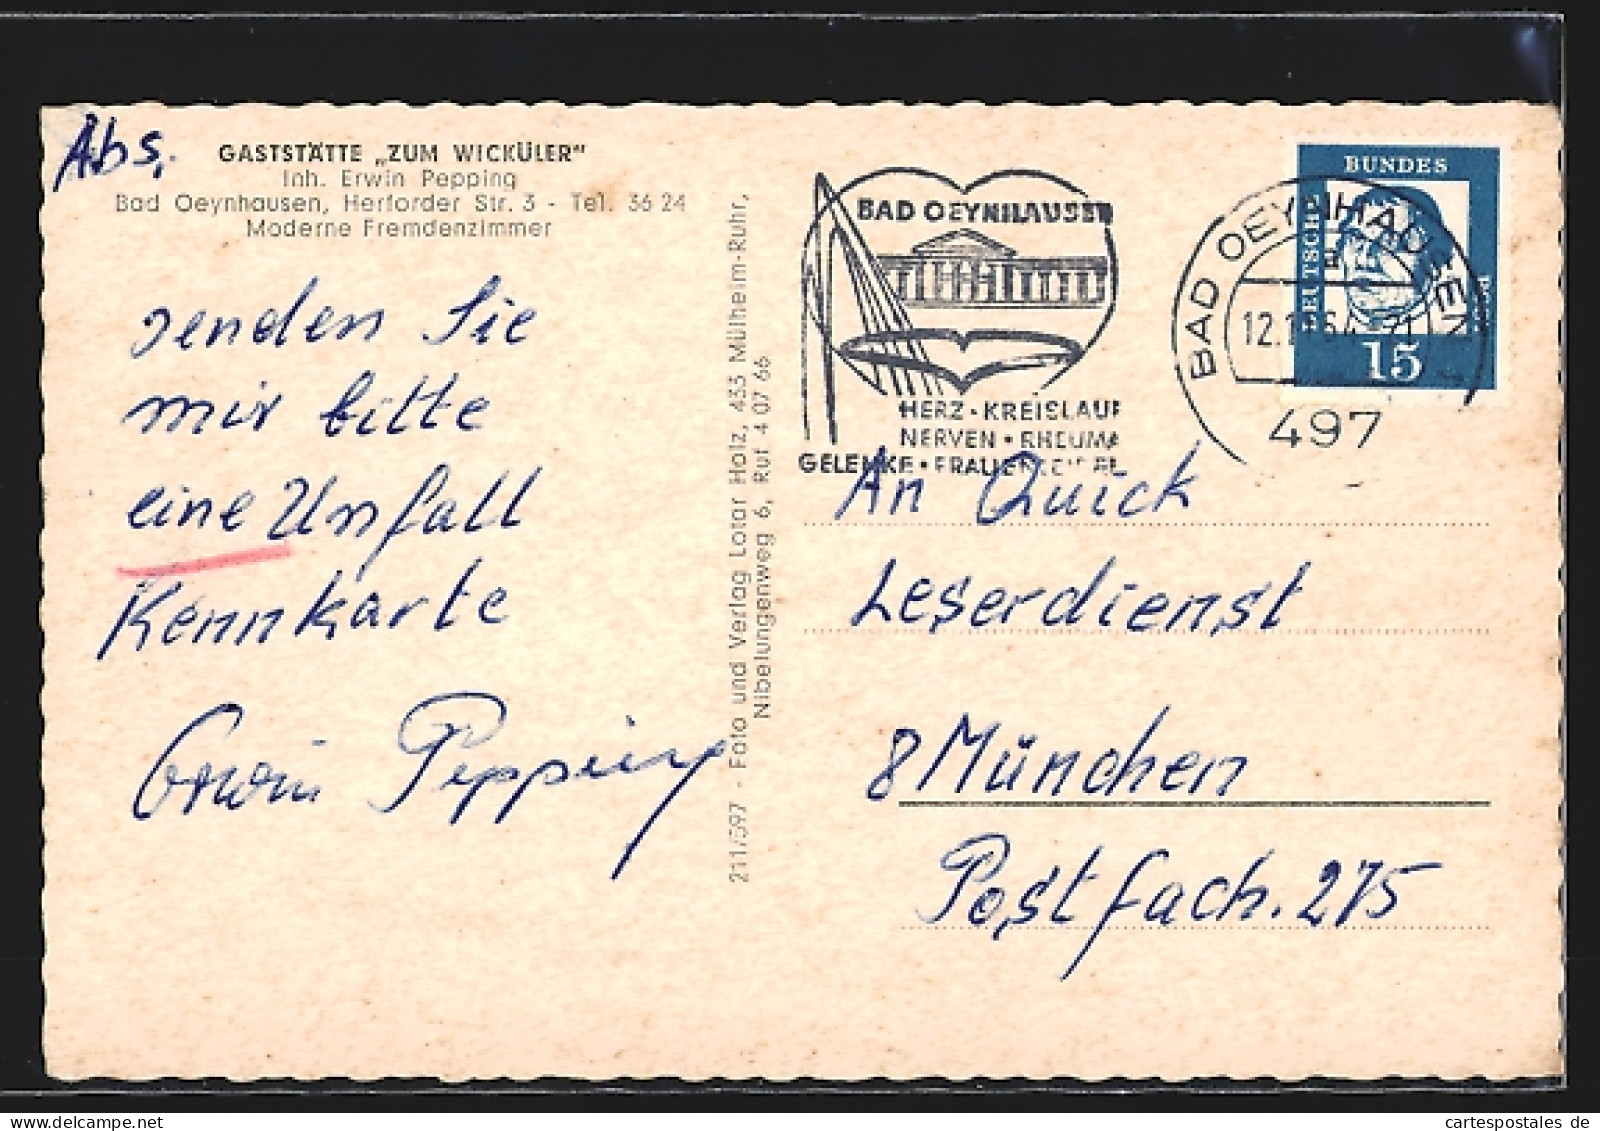 Abs.
GASTSTÄTTE „ZUM WICKÜLER"
Inh. Erwin Pepping
Bad Oeynhausen, Herforder Str. 3 - Tel. 36 24
Moderne Fremdenzimmer
senden Sie
mir bitte
eine Unfall
Kennkarte
Erwin Pepping
211/597 - Foto und Verlag Lotar Holz, 433 Mülheim-Ruhr,
Nibelungenweg 6, Ruf 4 07 66
BAD OEYNHAUSEN
HERZ · KREISLAUF
NERVEN · RHEUMA
GELENKE · FRAUENLEIDEN
BAD OEYNHAUSEN
12.
497
DEUTSCHE
BUNDES
POST
15
An Quick
Leserdienst
8 München
Postfach. 275
cartespostales.de